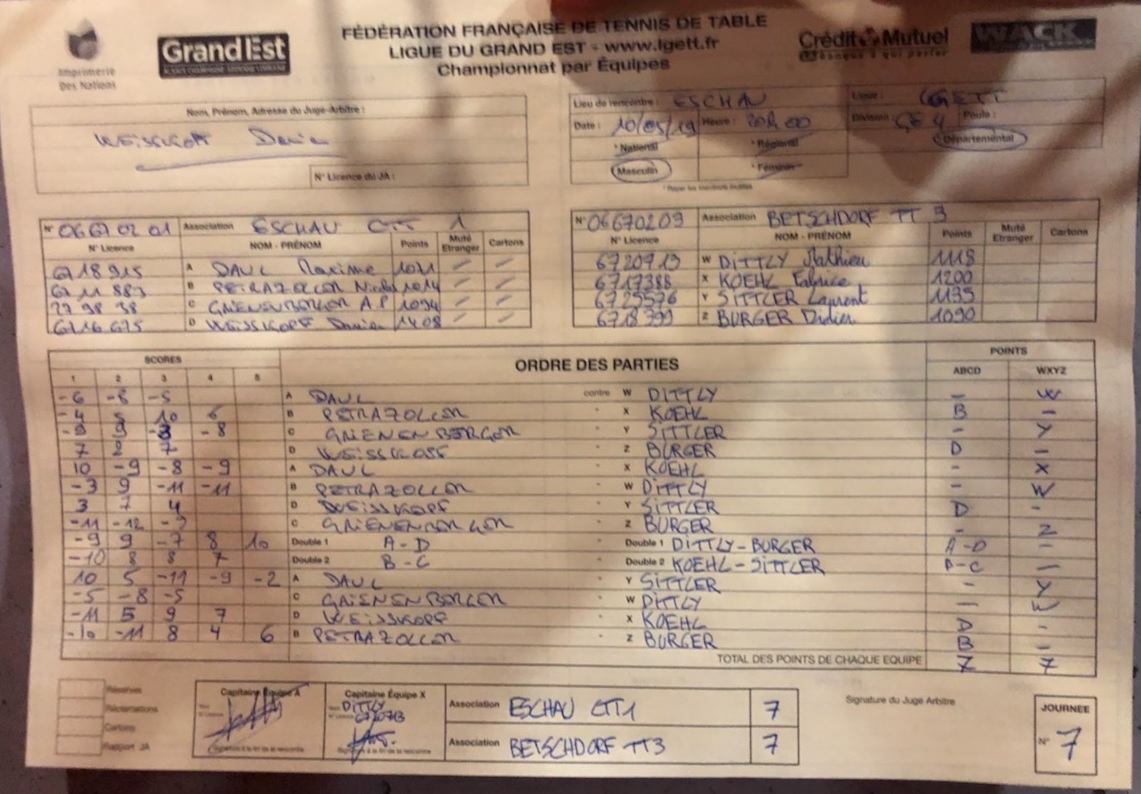 Imprimerie
Des Nations
Grand Est
FÉDÉRATION FRANÇAISE DE TENNIS DE TABLE
LIGUE DU GRAND EST - www.lgett.fr
Championnat par Équipes
Crédit Mutuel
WACK
Nom, Prénom, Adresse du Juge-Arbitre :
N° Licence du JA :
Lieu de rencontre : ESCHAU
Date : 10/05/19 Heure : 20h00
Division : GE 4 Poule :
* National * Régional Départemental
Masculin * Féminin
N° 06670201 Association ESCHAU CTT 1
N° Licence NOM - PRÉNOM Points Muté Etranger Cartons
6718915 A DAUL Maxime 1011
B PETRAZOLLER
C GRIENENBERGER A.P 1094
6716675 D WEISSKOPF Damien 1408
N° 06670209 Association BETSCHDORF TT 3
N° Licence NOM - PRÉNOM Points Muté Etranger Cartons
6720713 W DITTLY Mathieu 1118
6717388 X KOEHL Fabrice 1200
6725576 Y SITTLER Laurent 1135
6718399 Z BURGER Didier 1090
SCORES ORDRE DES PARTIES POINTS
1 2 3 4 5 ABCD WXYZ
-6 -8 -5 A DAUL contre W DITTLY - W
-4 8 10 6 B PETRAZOLLER " X KOEHL B -
-9 9 -3 -8 C GRIENENBERGER " Y SITTLER - Y
7 2 7 D WEISSKOPF " Z BURGER D -
10 -9 -8 -9 A DAUL " X KOEHL - X
-3 9 -11 -11 B PETRAZOLLER " W DITTLY - W
3 7 4 D WEISSKOPF " Y SITTLER D -
-11 -12 -7 C GRIENENBERGER " Z BURGER - Z
-9 9 -7 8 10 Double 1 A-D " Double 1 DITTLY-BURGER A-D -
-10 8 8 7 Double 2 B-C " Double 2 KOEHL-SITTLER B-C -
10 5 -11 -9 -2 A DAUL " Y SITTLER - Y
-5 -8 -5 C GRIENENBERGER " W DITTLY - W
-11 5 9 7 D WEISSKOPF " X KOEHL D -
-10 -11 8 4 6 B PETRAZOLLER " Z BURGER B -
TOTAL DES POINTS DE CHAQUE EQUIPE 7 7
Réserves
Réclamations
Cartons
Rapport JA
Capitaine Équipe A
Capitaine Équipe X
DITTLY
6720713
Association ESCHAU CTT1 7
Association BETSCHDORF TT3 7
Signature du Juge Arbitre
JOURNEE
N° 7